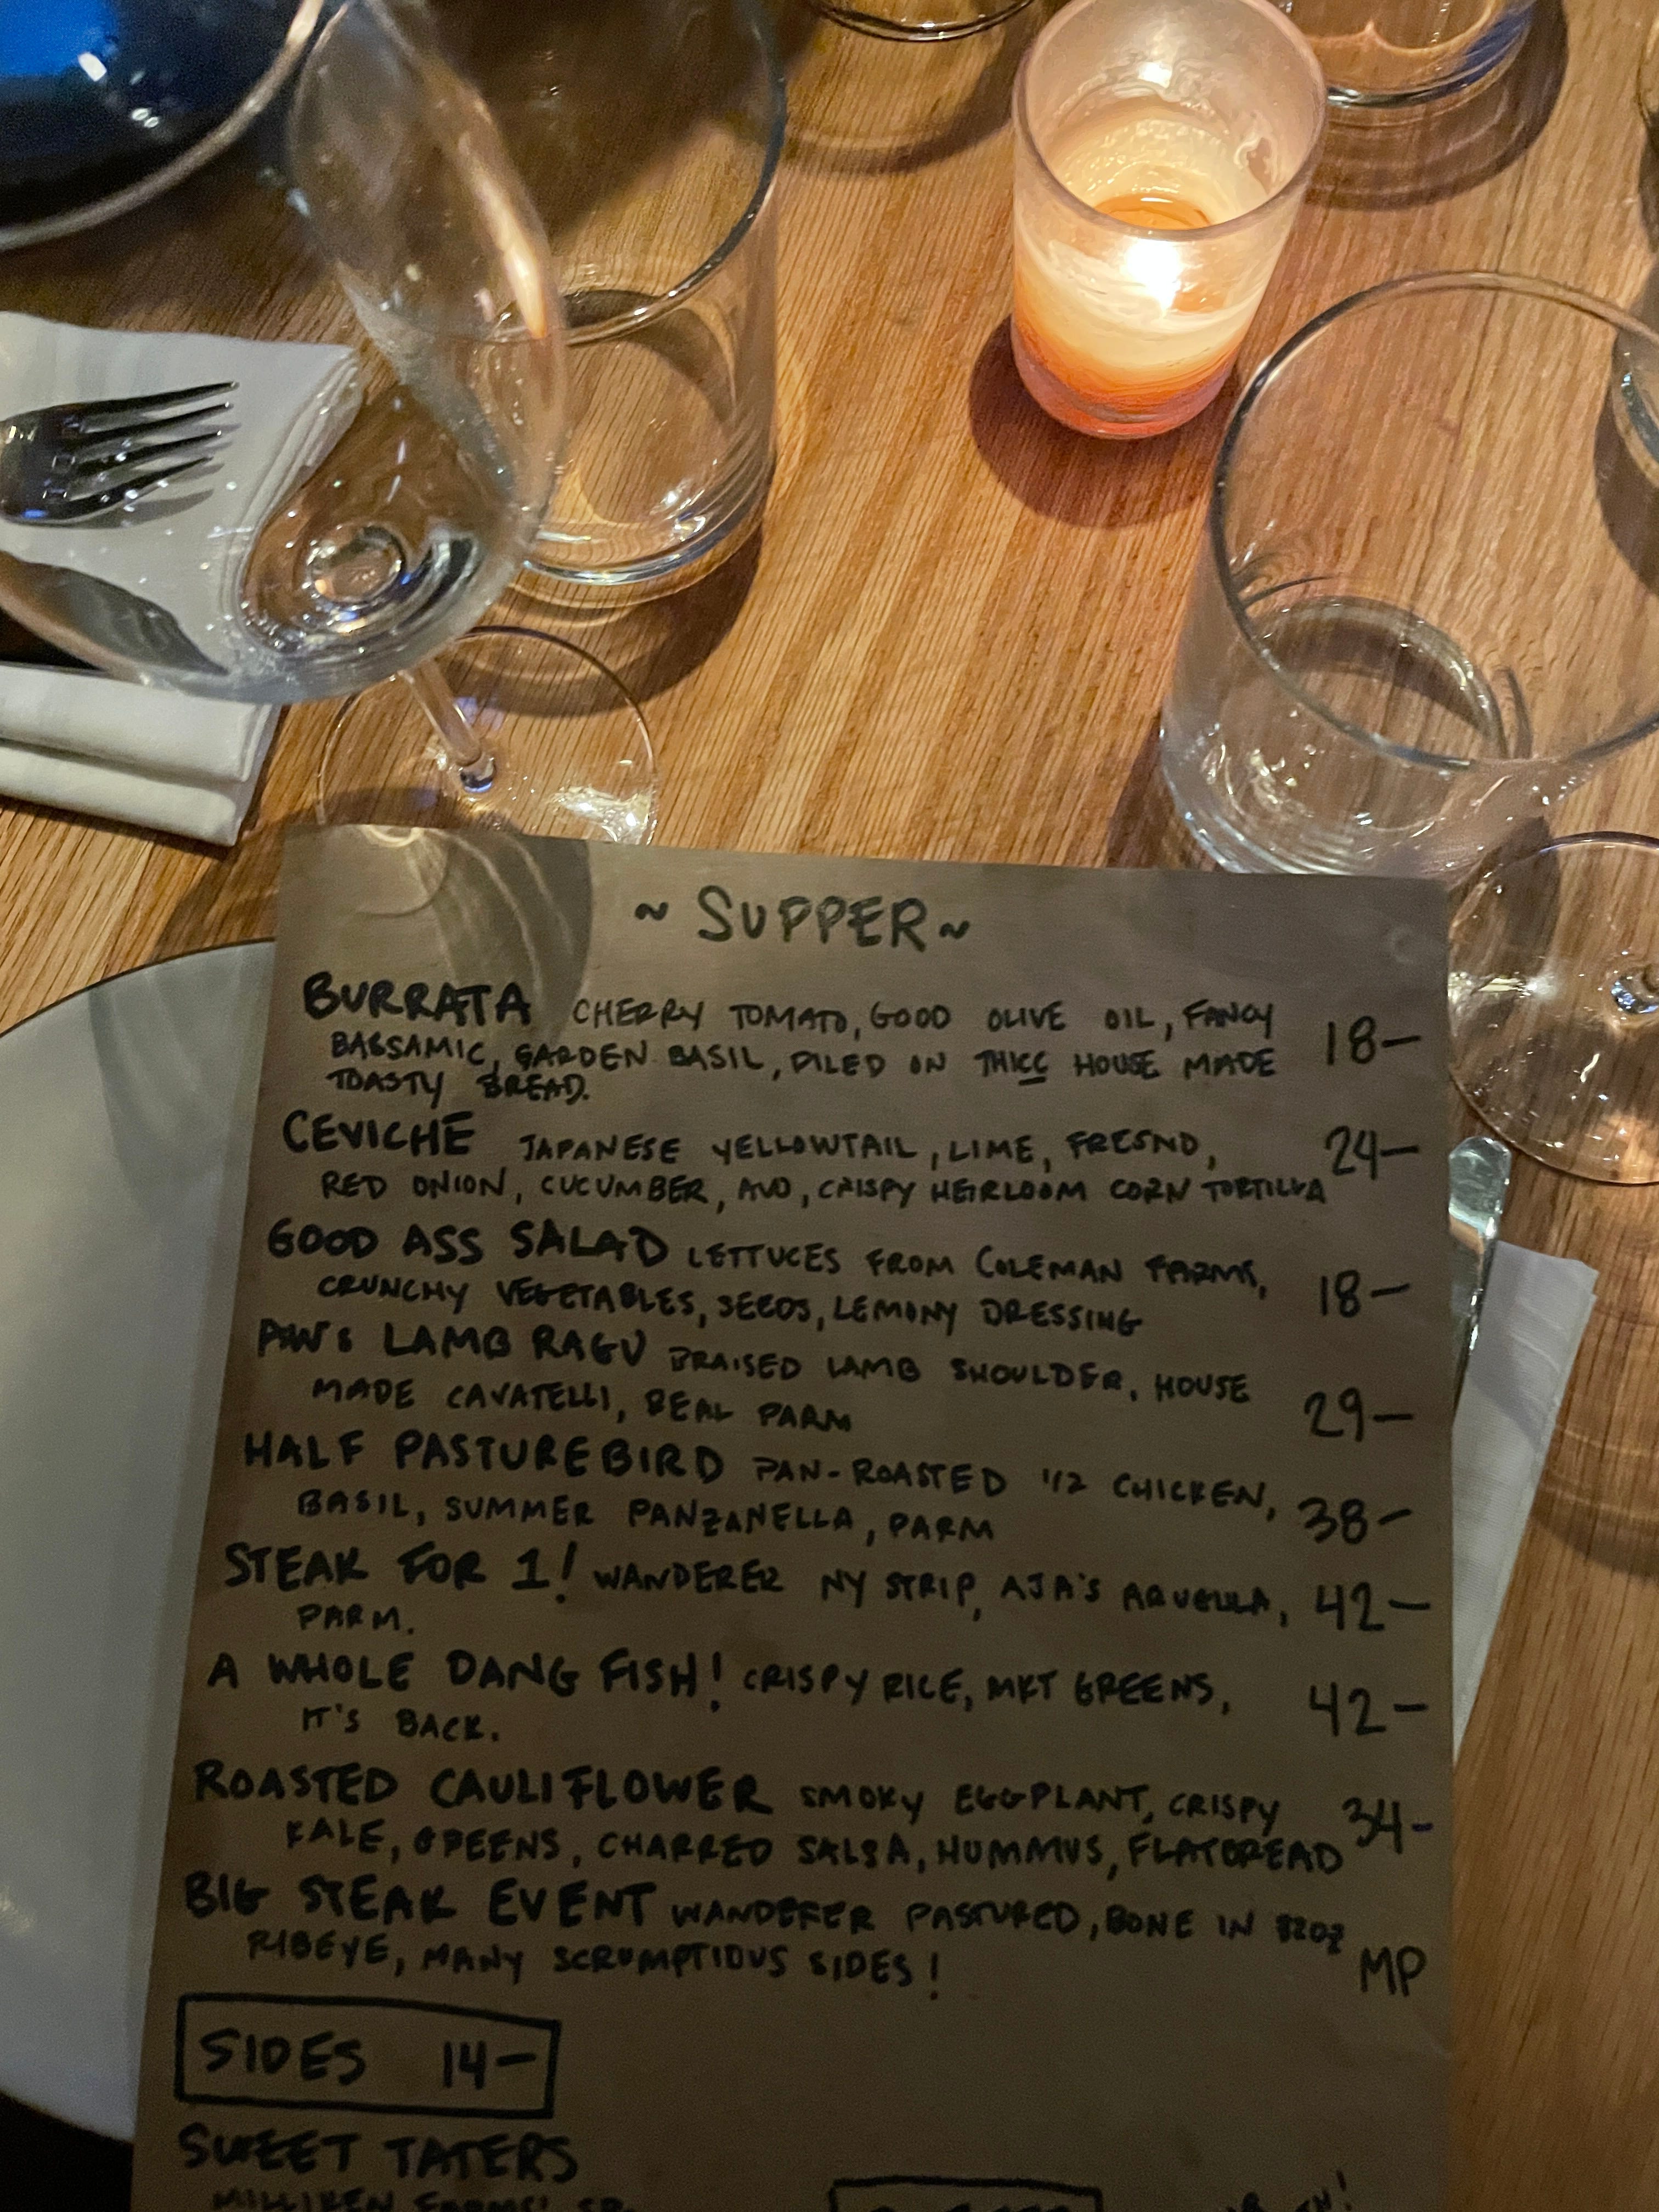 ~ SUPPER ~
BURRATA CHERRY TOMATO, GOOD OLIVE OIL, FANCY
BALSAMIC, GARDEN BASIL, PILED ON THICC HOUSE MADE 18-
TOASTY BREAD.
CEVICHE JAPANESE YELLOWTAIL, LIME, FRESNO, 24-
RED ONION, CUCUMBER, AVO, CRISPY HEIRLOOM CORN TORTILLA
GOOD ASS SALAD LETTUCES FROM COLEMAN FARMS, 18-
CRUNCHY VEGETABLES, SEEDS, LEMONY DRESSING
PAW'S LAMB RAGU BRAISED LAMB SHOULDER, HOUSE
MADE CAVATELLI, REAL PARM 29-
HALF PASTUREBIRD PAN-ROASTED 1/2 CHICKEN,
BASIL, SUMMER PANZANELLA, PARM 38-
STEAK FOR 1! WANDERER NY STRIP, AJA'S ARUGULA, 42-
PARM.
A WHOLE DANG FISH! CRISPY RICE, MKT GREENS, 42-
IT'S BACK.
ROASTED CAULIFLOWER SMOKY EGGPLANT, CRISPY 34-
KALE, GREENS, CHARRED SALSA, HUMMUS, FLATBREAD
BIG STEAK EVENT WANDERER PASTURED, BONE IN 32OZ
RIBEYE, MANY SCRUMPTIOUS SIDES! MP
SIDES 14-
SWEET TATERS
MILLIKEN FARMS'